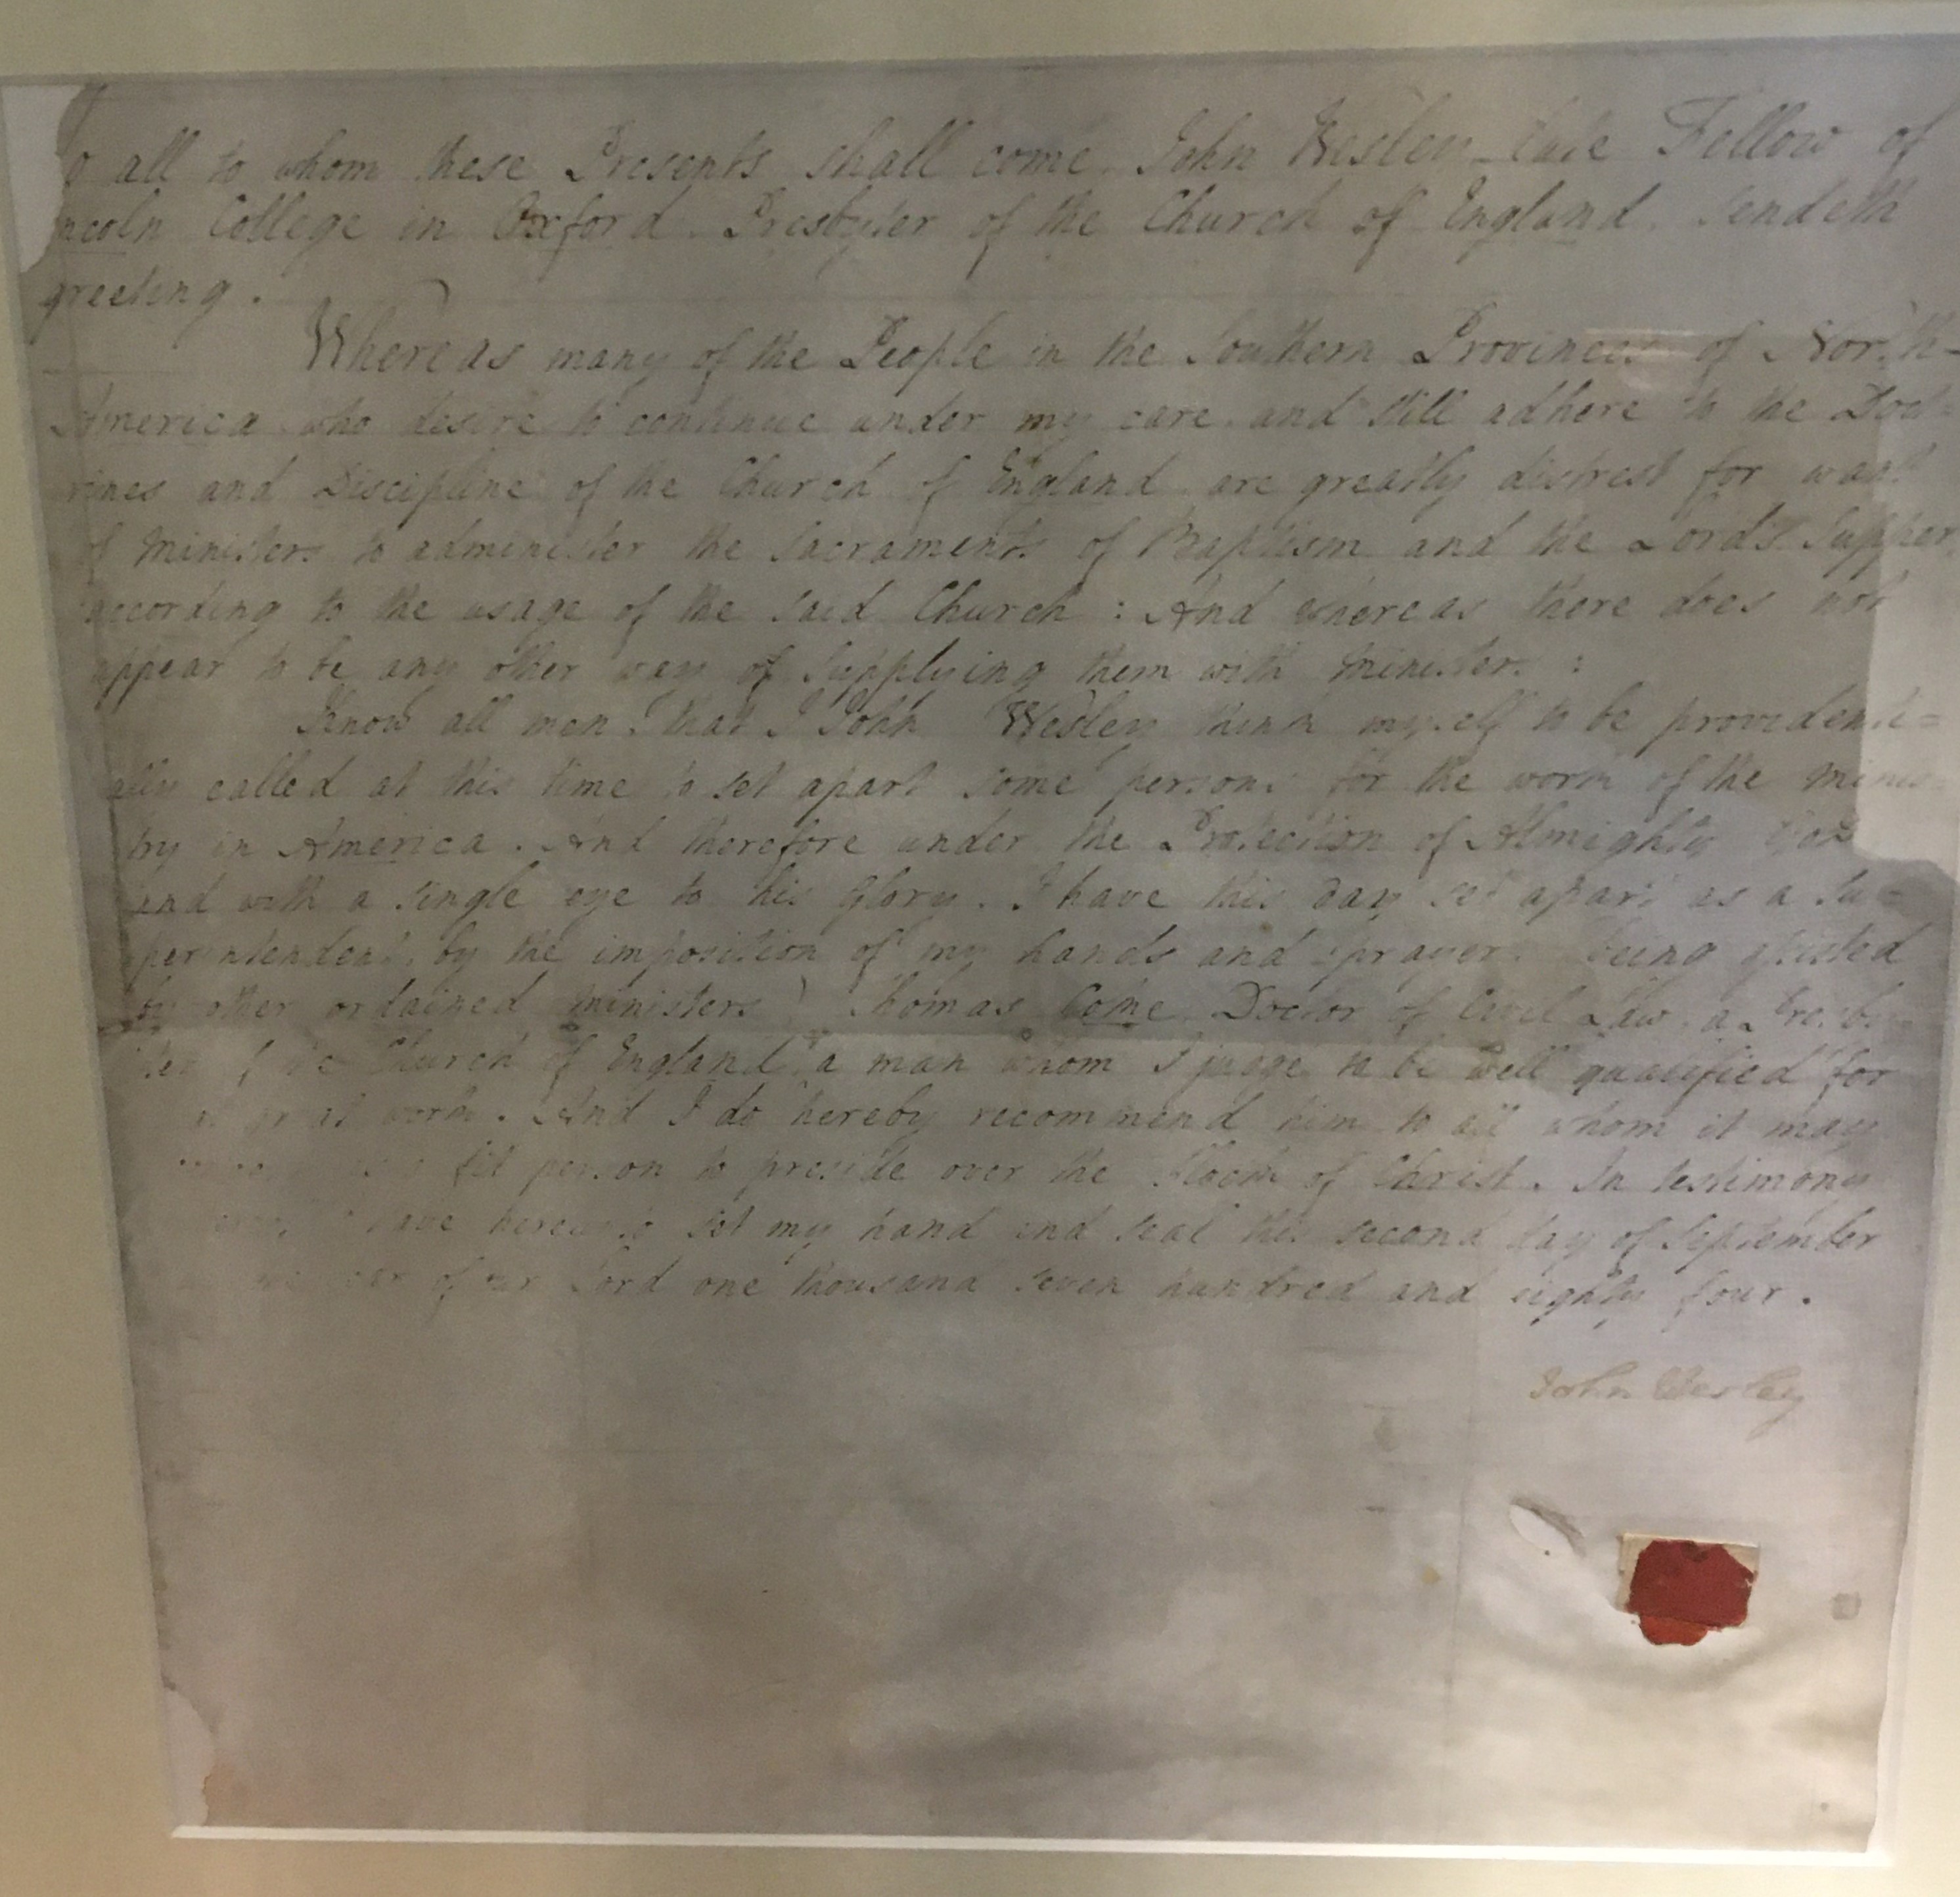 o all to whom these Presents shall come John Wesley late Fellow of
ncoln College in Oxford Presbyter of the Church of England sendeth
greeting.
Whereas many of the People in the Southern Provinces of North-
America who desire to continue under my care and still adhere to the Doct-
rines and Discipline of the Church of England are greatly distrest for want
of Ministers to administer the Sacraments of Baptism and the Lord's Supper
according to the usage of the said Church : And whereas there does not
appear to be any other way of supplying them with Ministers :
Know all men that I John Wesley think myself to be providenti=
ally called at this time to set apart some persons for the work of the minis-
try in America. And therefore under the Protection of Almighty God
and with a single eye to his Glory, I have this day set apart as a Su=
perintendent, by the imposition of my hands and prayer being assisted
by other ordained ministers) Thomas Coke Doctor of Civil Law, a Presby-
ter of the Church of England a man whom I judge to be well qualified for
great work. And I do hereby recommend him to all whom it may
fit person to preside over the Flock of Christ. In testimony
have hereunto set my hand and seal this second day of September
year of our Lord one thousand seven hundred and eighty four.
John Wesley